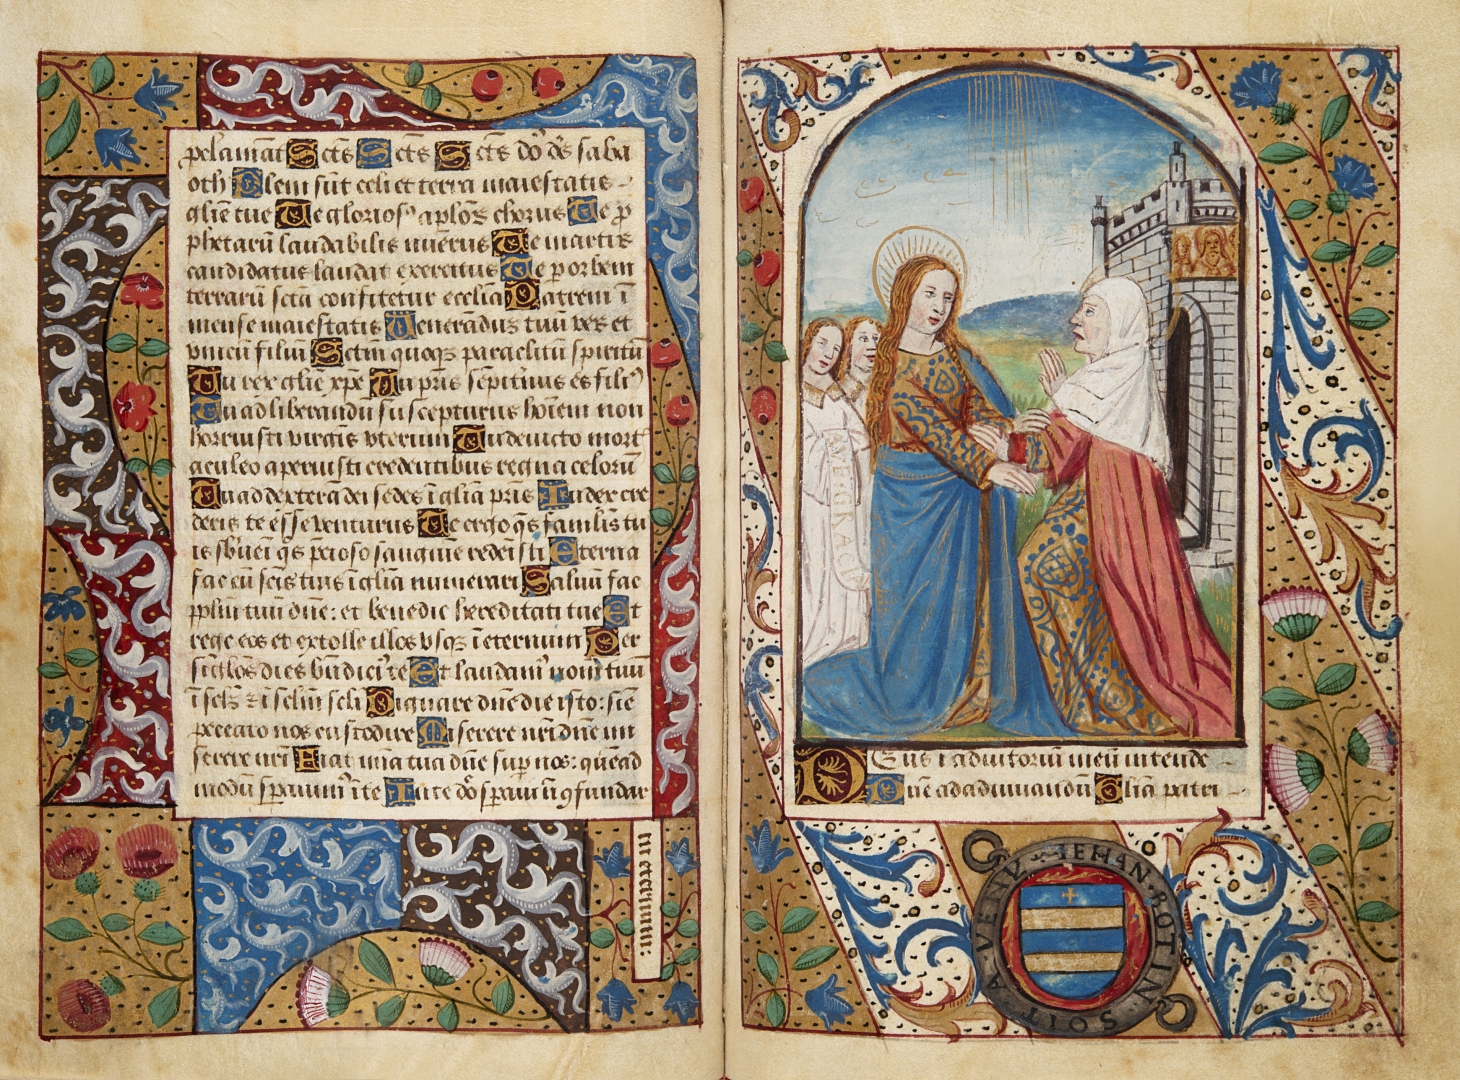 pclamāt Sctꝰ Sctꝰ Sctꝰ dō dꝭ saba
oth Pleni sūt celi et terra maiestatis
glie tue Te glorios⁹ aplōꝝ chorus Te ꝓ
phetarū laudabilis nūerus Te martiꝝ
candidatus laudat exercitus Te per orbem
terrarū scta confitetur ecclīa Patrem ī
mense maiestatis Venerādus tuū veꝝ et
vnicū filiū Sctm quoqꝫ paraclitū spiritū
Tu rex glie xpe Tu pr̄is sēpitnus es fili⁹
Tu ad liberandū suscepturus hoīem non
horruisti virgīs vterum Tu deuicto mort
aculeo aperuisti credentibus regna celorū
Tu ad dexterā dei sedes ī glīa pr̄is Iudex cre
deris te esse venturus Te ergo qs famulis tu
is sbueī qs p̄cioso sanguine redemisti Eterna
fac cū scīs tuis ī glīa numerari Saluū fac
pplm tuū dn̄e: et benedic hereditati tue Et
rege eos et extolle illos vsqꝫ ī eternum Per
sīglos dies bn̄dicim̄ te Et laudam̄ nom̄ tuū
ī selꝫ ⁊ ī selm̄ seli Dignare dn̄e die isto: sīe
peccato nos custodire Miserere nr̄i dn̄e mi
serere nr̄i Fiat mīa tua dn̄e sup nos: quēad
modū sperauim̄ ī te In te dō speraui nō ꝯfundar
in eternum:
AVE GRACIA
DEus ī adiutoriū meū intende
Dn̄e ad adiuuandū Glīa patri
JEHAN·BOTIN·SOIT·A·VENV